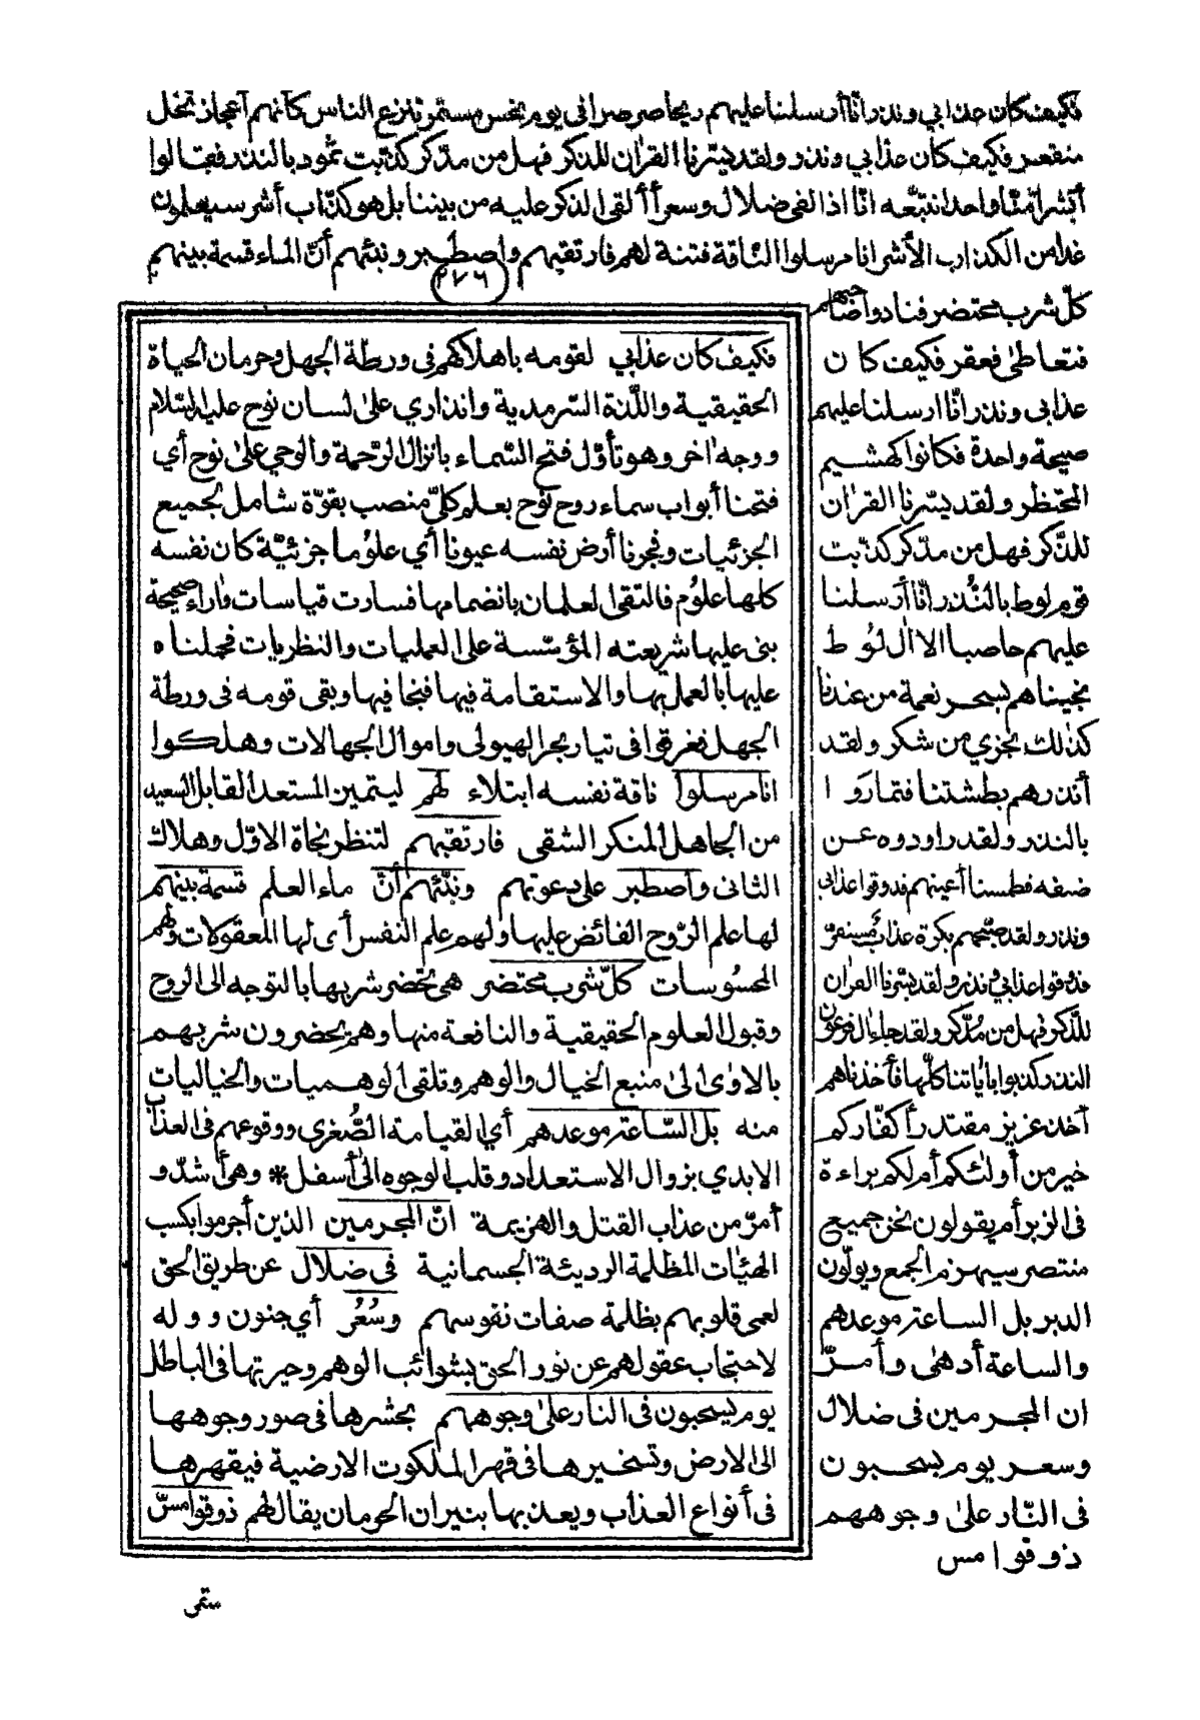 فكيف كان عذابي ونذر انّا أرسلنا عليهم ريحا صرصرا في يوم نحس مستمر تنزع الناس كأنهم أعجاز نخل
منقعر فكيف كان عذابي ونذر ولقد يسّرنا القرآن للذكر فهل من مدّكر كذّبت ثمود بالنذر فقالوا
أبشرا منّا واحدا نتبّعه انّا اذا لفي ضلال وسعر أألقي الذكر عليه من بيننا بل هو كذّاب أشر سيعلمون
غدا من الكذاب الأشر انا مرسلوا النّاقة فتنة لهم فارتقبهم واصطبر ونبئهم أنّ الماء قسمة بينهم
٢٧٦
كلّ شرب محتضر فنادوا صاحبهم
فتعاطىٰ فعقر فكيف كان
عذابي ونذر انّا ارسلنا عليهم
صيحة واحدة فكانوا كهشيم
المحتظر ولقد يسّرنا القرآن
للذّكر فهل من مدّكر كذّبت
قوم لوط بالنُّذر انّا أرسلنا
عليهم حاصبا الا اٰل لوُط
نجيناهم بسحر نعمة من عندنا
كذٰلك نجزي من شكر ولقد
أنذرهم بطشتنا فتمارَوا
بالنذر ولقد راودوه عن
ضيفه فطمسنا أعينهم فذوقوا عذابي
ونذر ولقد صبّحهم بكرة عذابٌ مستقرّ
فذوقوا عذابي ونذر ولقد يسّرنا القرآن
للذّكر فهل من مُدّكر ولقد جاء اٰل فرعون
النذر كذبوا باٰياتنا كلّها فأخذناهم
أخذ عزيز مقتدر أكفّاركم
خير من أولئكم أم لكم براءة
في الزبر أم يقولون نحن جميع
منتصر سيهزم الجمع ويولّون
الدبر بل الساعة موعدهم
والساعة أدهىٰ وأمرّ
ان المجرمين في ضلال
وسعر يوم يسحبون
في النّار علىٰ وجوههم
ذوقوا مس
فكيف كان عذابي لقومه باهلاكهم في ورطة الجهل وحرمان الحياة
الحقيقية واللّذة السّرمدية وانذاري علىٰ لسان نوح عليه السّلام
ووجه اٰخر وهو تأوّل فتح السّماء بانزال الرّحمة والوحي علىٰ نوح أي
فتحنا أبواب سماء روح نوح بعلم كلّيّ منصب بقوّة شامل لجميع
الجزئيات وفجرنا أرض نفسه عيونا أي علوُما جزئيّة كان نفسه
كلها علوُم فالتقى العلمان بانضمامها فصارت قياسات واٰراء صحيحة
بنى عليها شريعته المؤسّسة على العمليات والنظريات فحملناه
عليها بالعمل بها والاستقامة فيها فنجا فيها وبقى قومه في ورطة
الجهل فغرقوا في تيار بحر الهيولى وامواال الجهالات وهلكوا
انا مرسلوا ناقة نفسه ابتلاء لهم ليتميز المستعد القابل السعيد
من الجاهل المنكر الشقي فارتقبهم لتنظر نجاة الاوّل وهلاك
الثاني واصطبر على دعوتهم ونبّئهم أنّ ماء العلم قسمة بينهم
لها علم الرّوح الفائض عليها ولهم علم النفس أي لها المعقولات ولهم
المحسُوسات كلّ شرب محتضر هي تحضر شربها بالتوجه الى الروح
وقبول العلوم الحقيقية والنافعة منها وهم يحضرون شربهم
بالاوٰى الىٰ منبع الخيال والوهم وتلقى الوهميات والخياليات
منه بل السّاعة موعدهم أي القيامة الصُّغرى ووقوعهم في العذاب
الابدي بزوال الاستعداد وقلب الوجوه الىٰ أسفل * وهي أشدّ و
أمرّ من عذاب القتل والهزيمة انّ المجرمين الذين أجرموا بكسب
الهيٰات المظلمة الرديئة الجسمانية في ضلال عن طريق الحق
لعمى قلوبهم بظلمة صفات نفوسهم وسُعُر أي جنون ووله
لاحتجاب عقولهم عن نور الحق بشوائب الوهم وحيرتها في الباطل
يوم يسحبون في النار علىٰ وجوههم بحشرها في صور وجوهها
الى الارض وتسخيرها في قهر الملكوت الارضية فيقهرها
في أنواع العذاب ويعذبها بنيران الحرمان يقال لهم ذوقوا مسّ